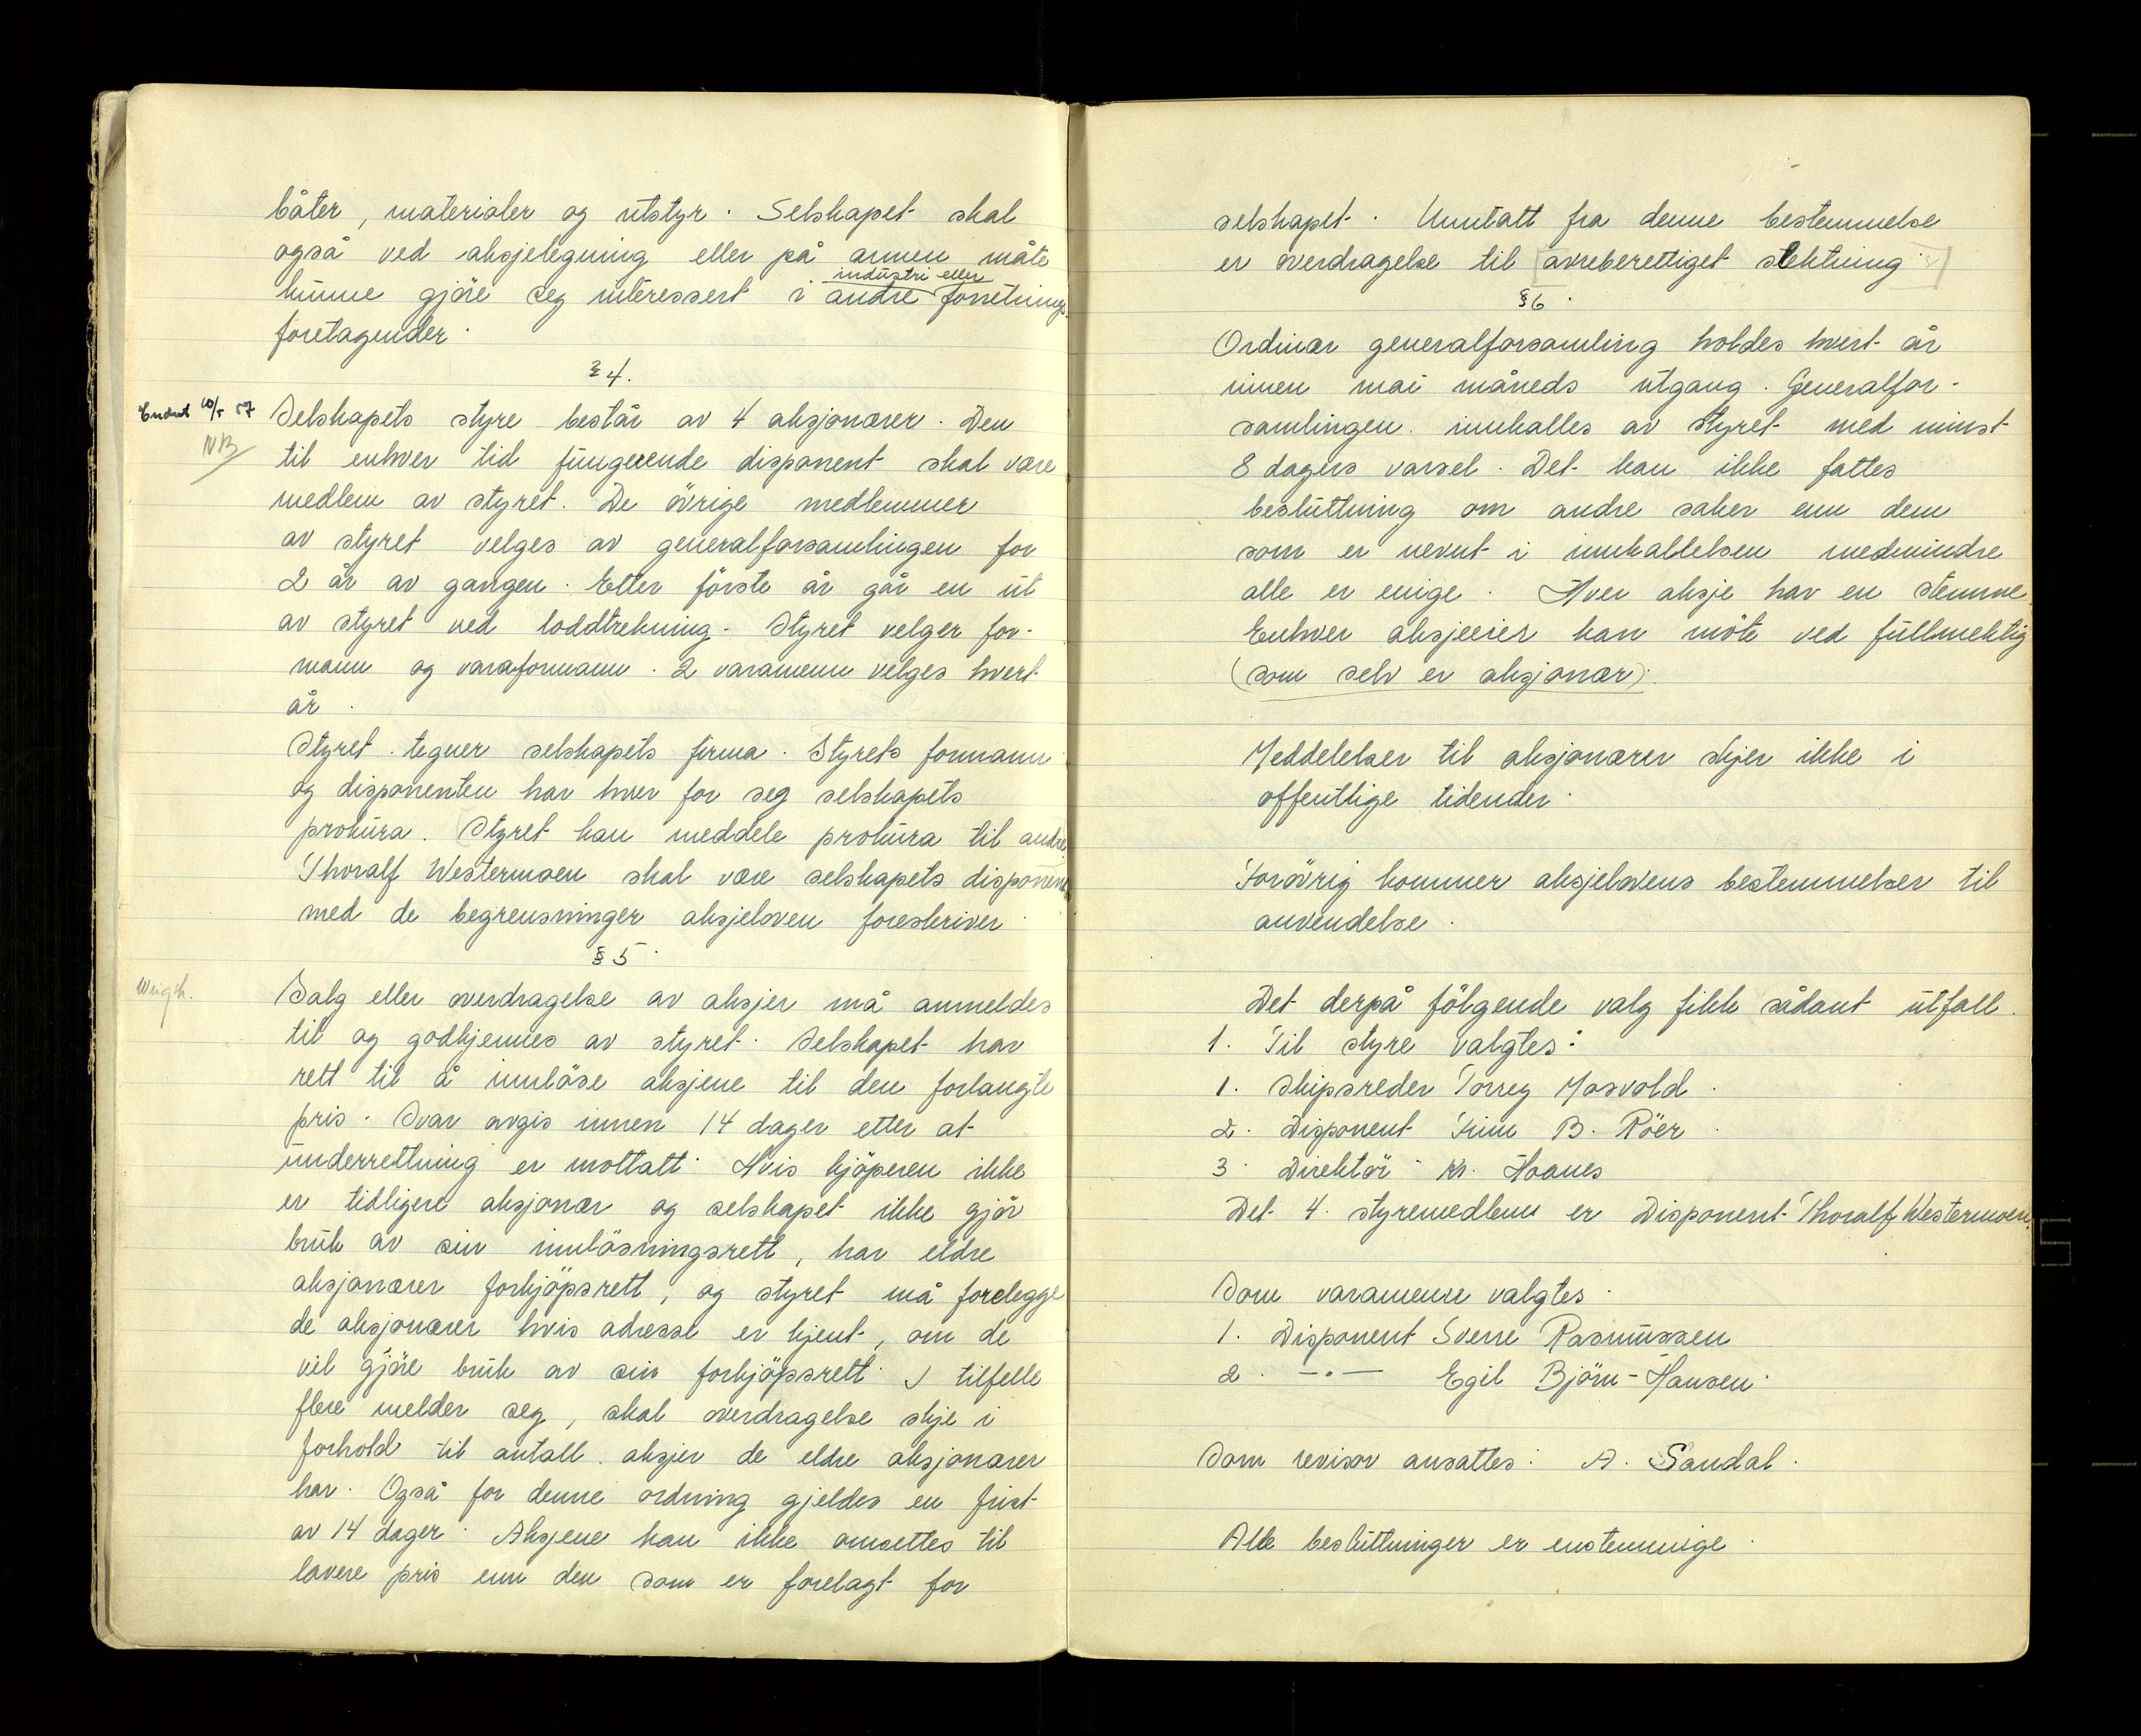 båter, materialer og utstyr. Selskapet skal
også ved aksjetegning eller på annen måte
industri eller
kunne gjöre seg interessert i andre forretnings-
foretagender.
§ 4.
Endret 10/5 57
NB
Selskapets styre består av 4 aksjonærer. Den
til enhver tid fungerende disponent skal være
medlem av styret. De övrige medlemmer
av styret velges av generalforsamlingen for
2 år av gangen. Etter förste år går en ut
av styret ved loddtrekning. Styret velger for-
mann og varaformann. 2 varamenn velges hvert
år.
Styret tegner selskapets firma. Styrets formann
og disponenten har hver for seg selskapets
prokura. Styret kan meddele prokura til andre.
Thoralf Westermoen skal være selskapets disponent
med de begrensninger aksjeloven foreskriver.
§ 5.
Salg eller overdragelse av aksjer må anmeldes
til og godkjennes av styret. Selskapet har
rett til å innlöse aksjene til den forlangte
pris. Svar avgis innen 14 dager etter at
underretning er mottatt. Hvis kjöperen ikke
er tidligere aksjonær og selskapet ikke gjör
bruk av sin innlösningsrett, har eldre
aksjonærer forkjöpsrett, og styret må forelegge
de aksjonærer hvis adresse er kjent, om de
vil gjöre bruk av sin forkjöpsrett. I tilfelle
flere melder seg, skal overdragelse skje i
forhold til antall aksjer de eldre aksjonærer
har. Også for denne ordning gjelder en frist
av 14 dager. Aksjene kan ikke omsettes til
lavere pris enn den som er forelagt for
selskapet. Unntatt fra denne bestemmelse
er overdragelse til [arveberettiget slektning.]
§ 6.
Ordinær generalforsamling holdes hvert år
innen mai måneds utgang. Generalfor-
samlingen innkalles av styret med minst
8 dagers varsel. Det kan ikke fattes
beslutning om andre saker enn dem
som er nevnt i innkallelsen medmindre
alle er enige. Hver aksje har en stemme.
Enhver aksjeeier kan möte ved fullmektig
(som selv er aksjonær).
Meddelelser til aksjonærer skjer ikke i
offentlige tidender.
Forövrig kommer aksjelovens bestemmelser til
anvendelse.
Det derpå fölgende valg fikk sådant utfall.
1. Til styre valgtes:
1. Skipsreder Torrey Mosvold.
2. Disponent Finn B. Röer.
3. Direktör Kr. Hoanes
Det 4. styremedlem er Disponent Thoralf Westermoen.
Som varamenn valgtes.
1. Disponent Sverre Rasmussen
2. —"— Egil Björn-Hansen.
Som revisor ansattes: A. Sandal.
Alle beslutninger er enstemmige.